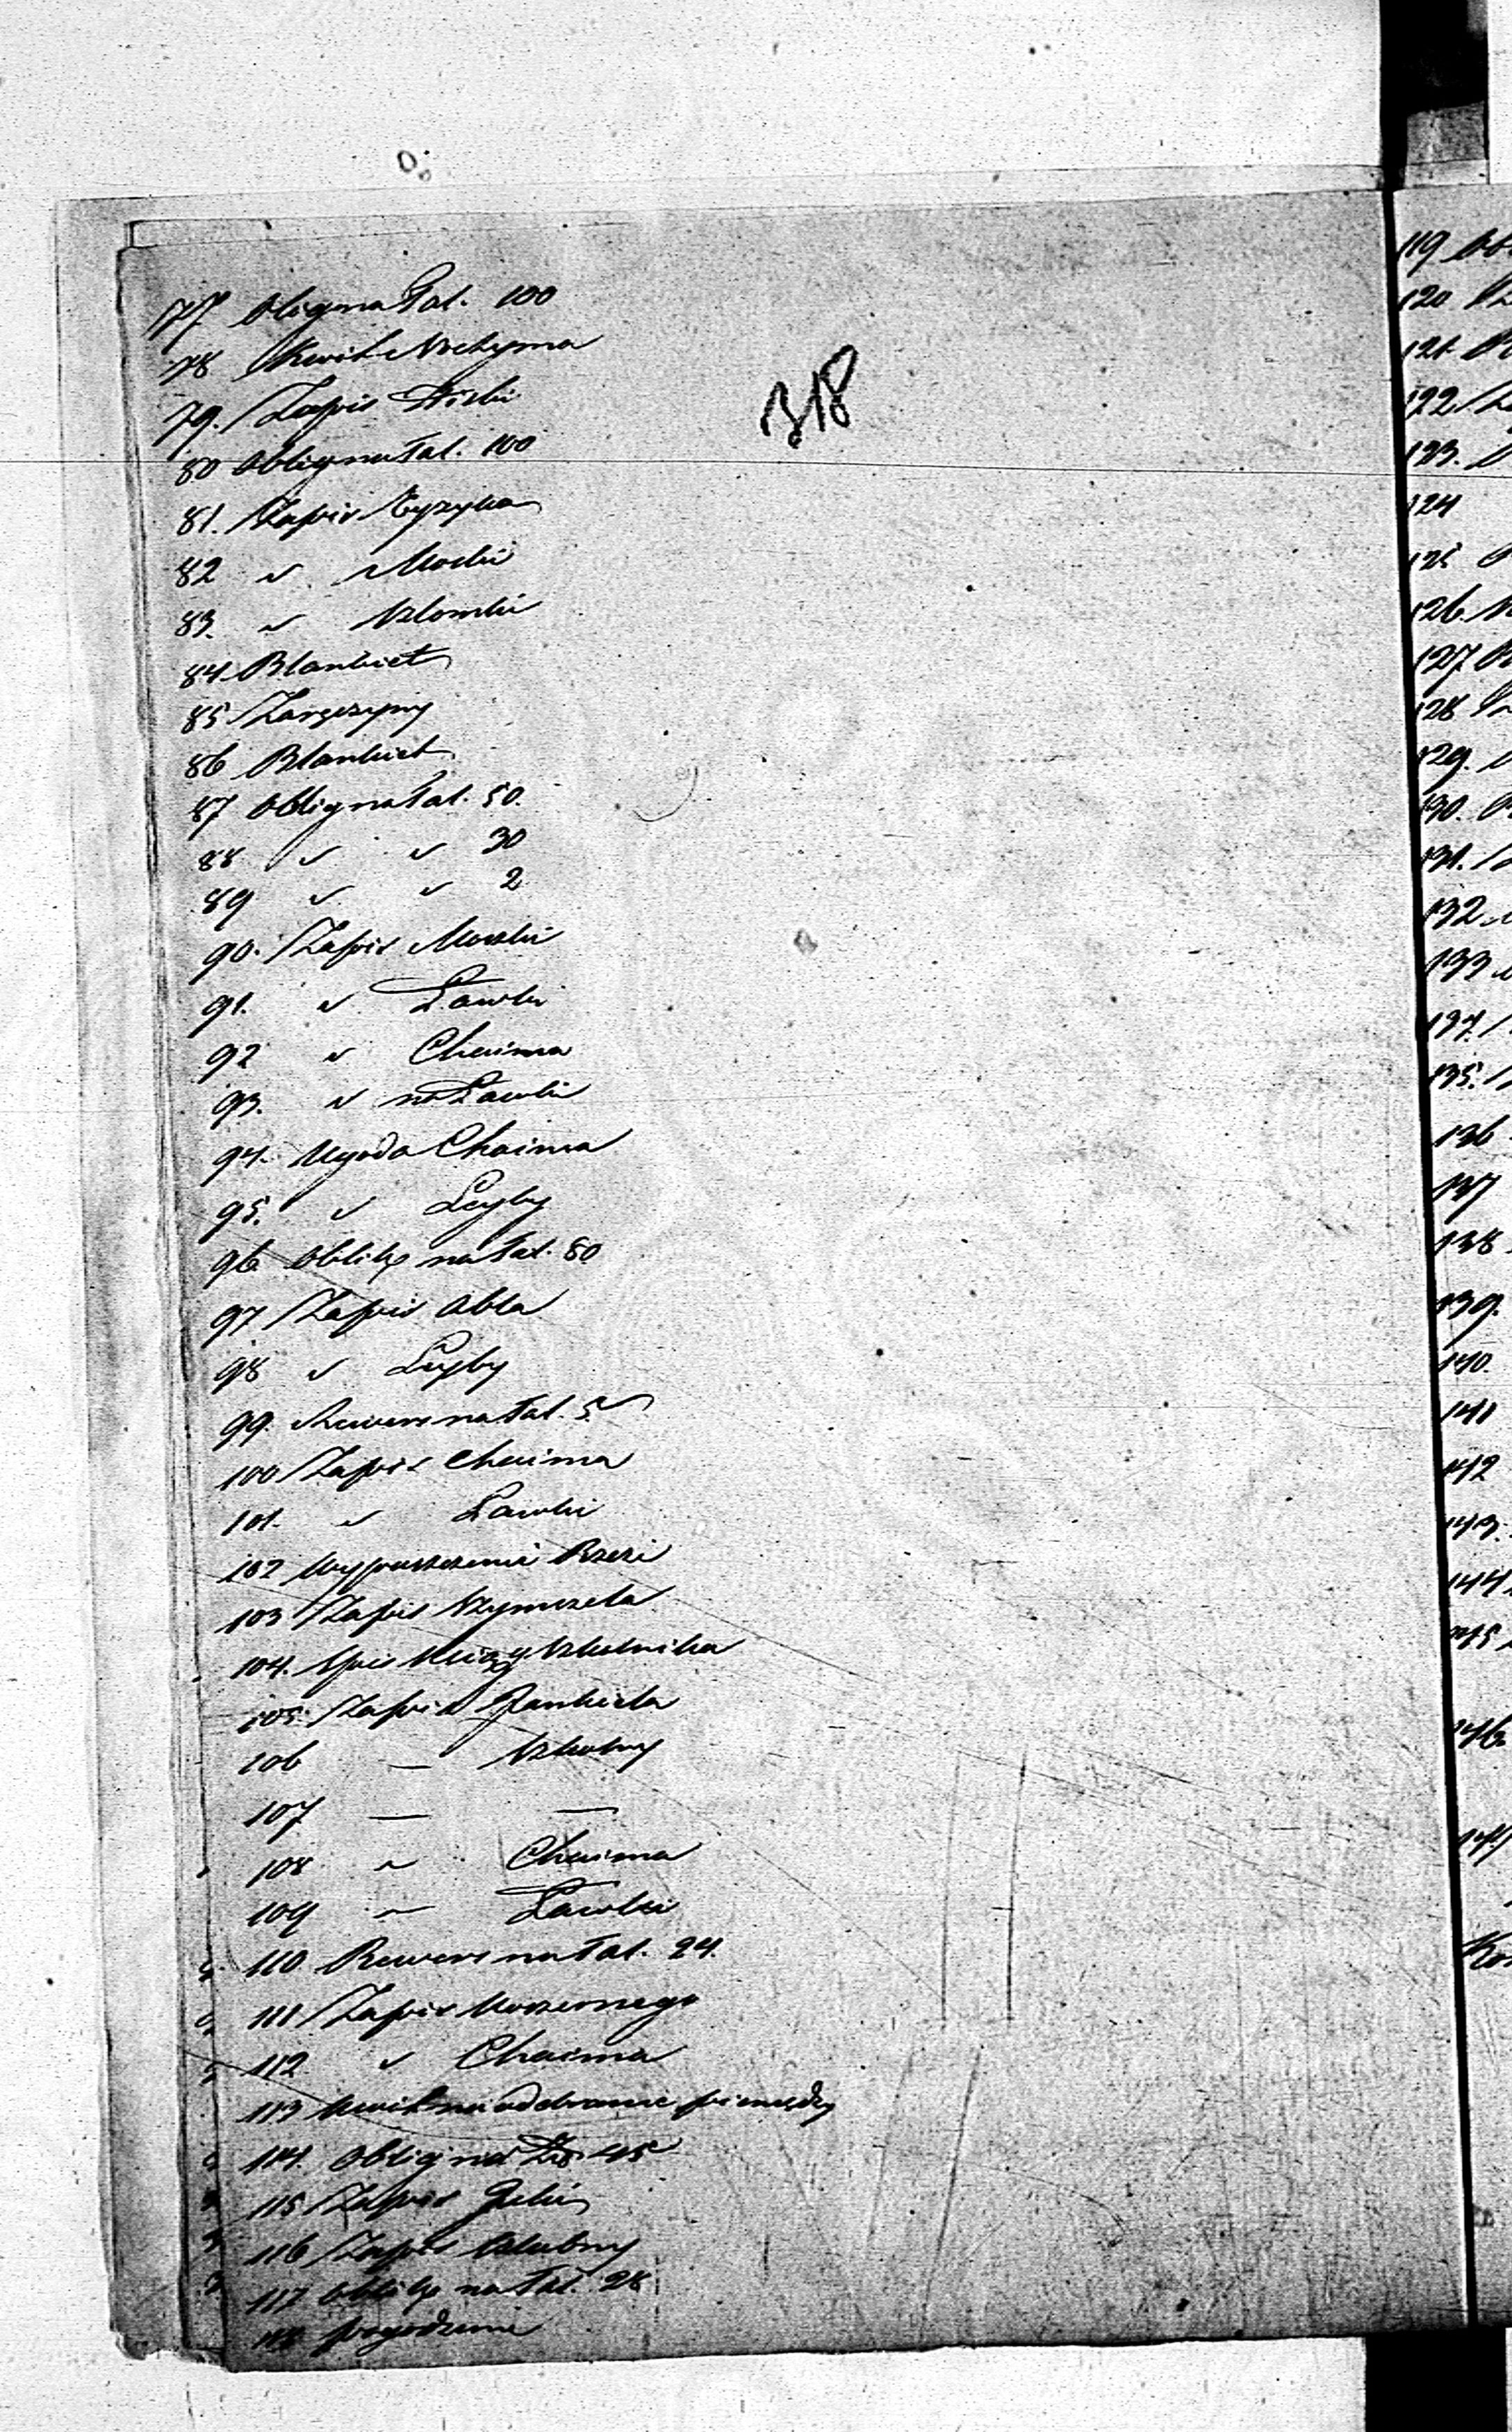 318
77 Oblig na Tal. 100
78 Kwit Nochyma
79. Zapis
80 Oblig na Tal. 100
81. Zapis Cyzyka
82 " Moski
83. " Szlomki
84 Blankiet
85 Zaręczyny
86 Blankiet
87 Oblig na Tal. 50.
88 " " 30
89 " " 2
90. Zapis Moszki
91. " Ławki
92 " Chaima
93. " na Ławki
94. Ugoda Chaima
95. " Leyby
96 Oblig na Tal. 80
97 Zapis Abla
98 " Leyby
99. Rewers na Tal. 5
100 Zapis Chaima
101. " Ławki
102 Wypuszczenie Rzezi
103 Zapis Szymszela
104. Spis Szkolnika
105. Zapis Jankiela
106 — Szkolny
107 — —
108 " Chaima
109 " Ławki
110 Rewers na Tal. 24.
111 Zapis
112 " Chaima
113 Kwit na odebranie pieniędzy
114. Oblig na 45
115 Zapis
116 Zapis Szkolny
117 Oblig na Tal. 28
118 pogodzenie
119
120
121
122
123.
124
125
126.
127
128
129.
130.
131.
132
133
134.
135.
136
137
138
139.
140.
141
142
143.
144
145
146